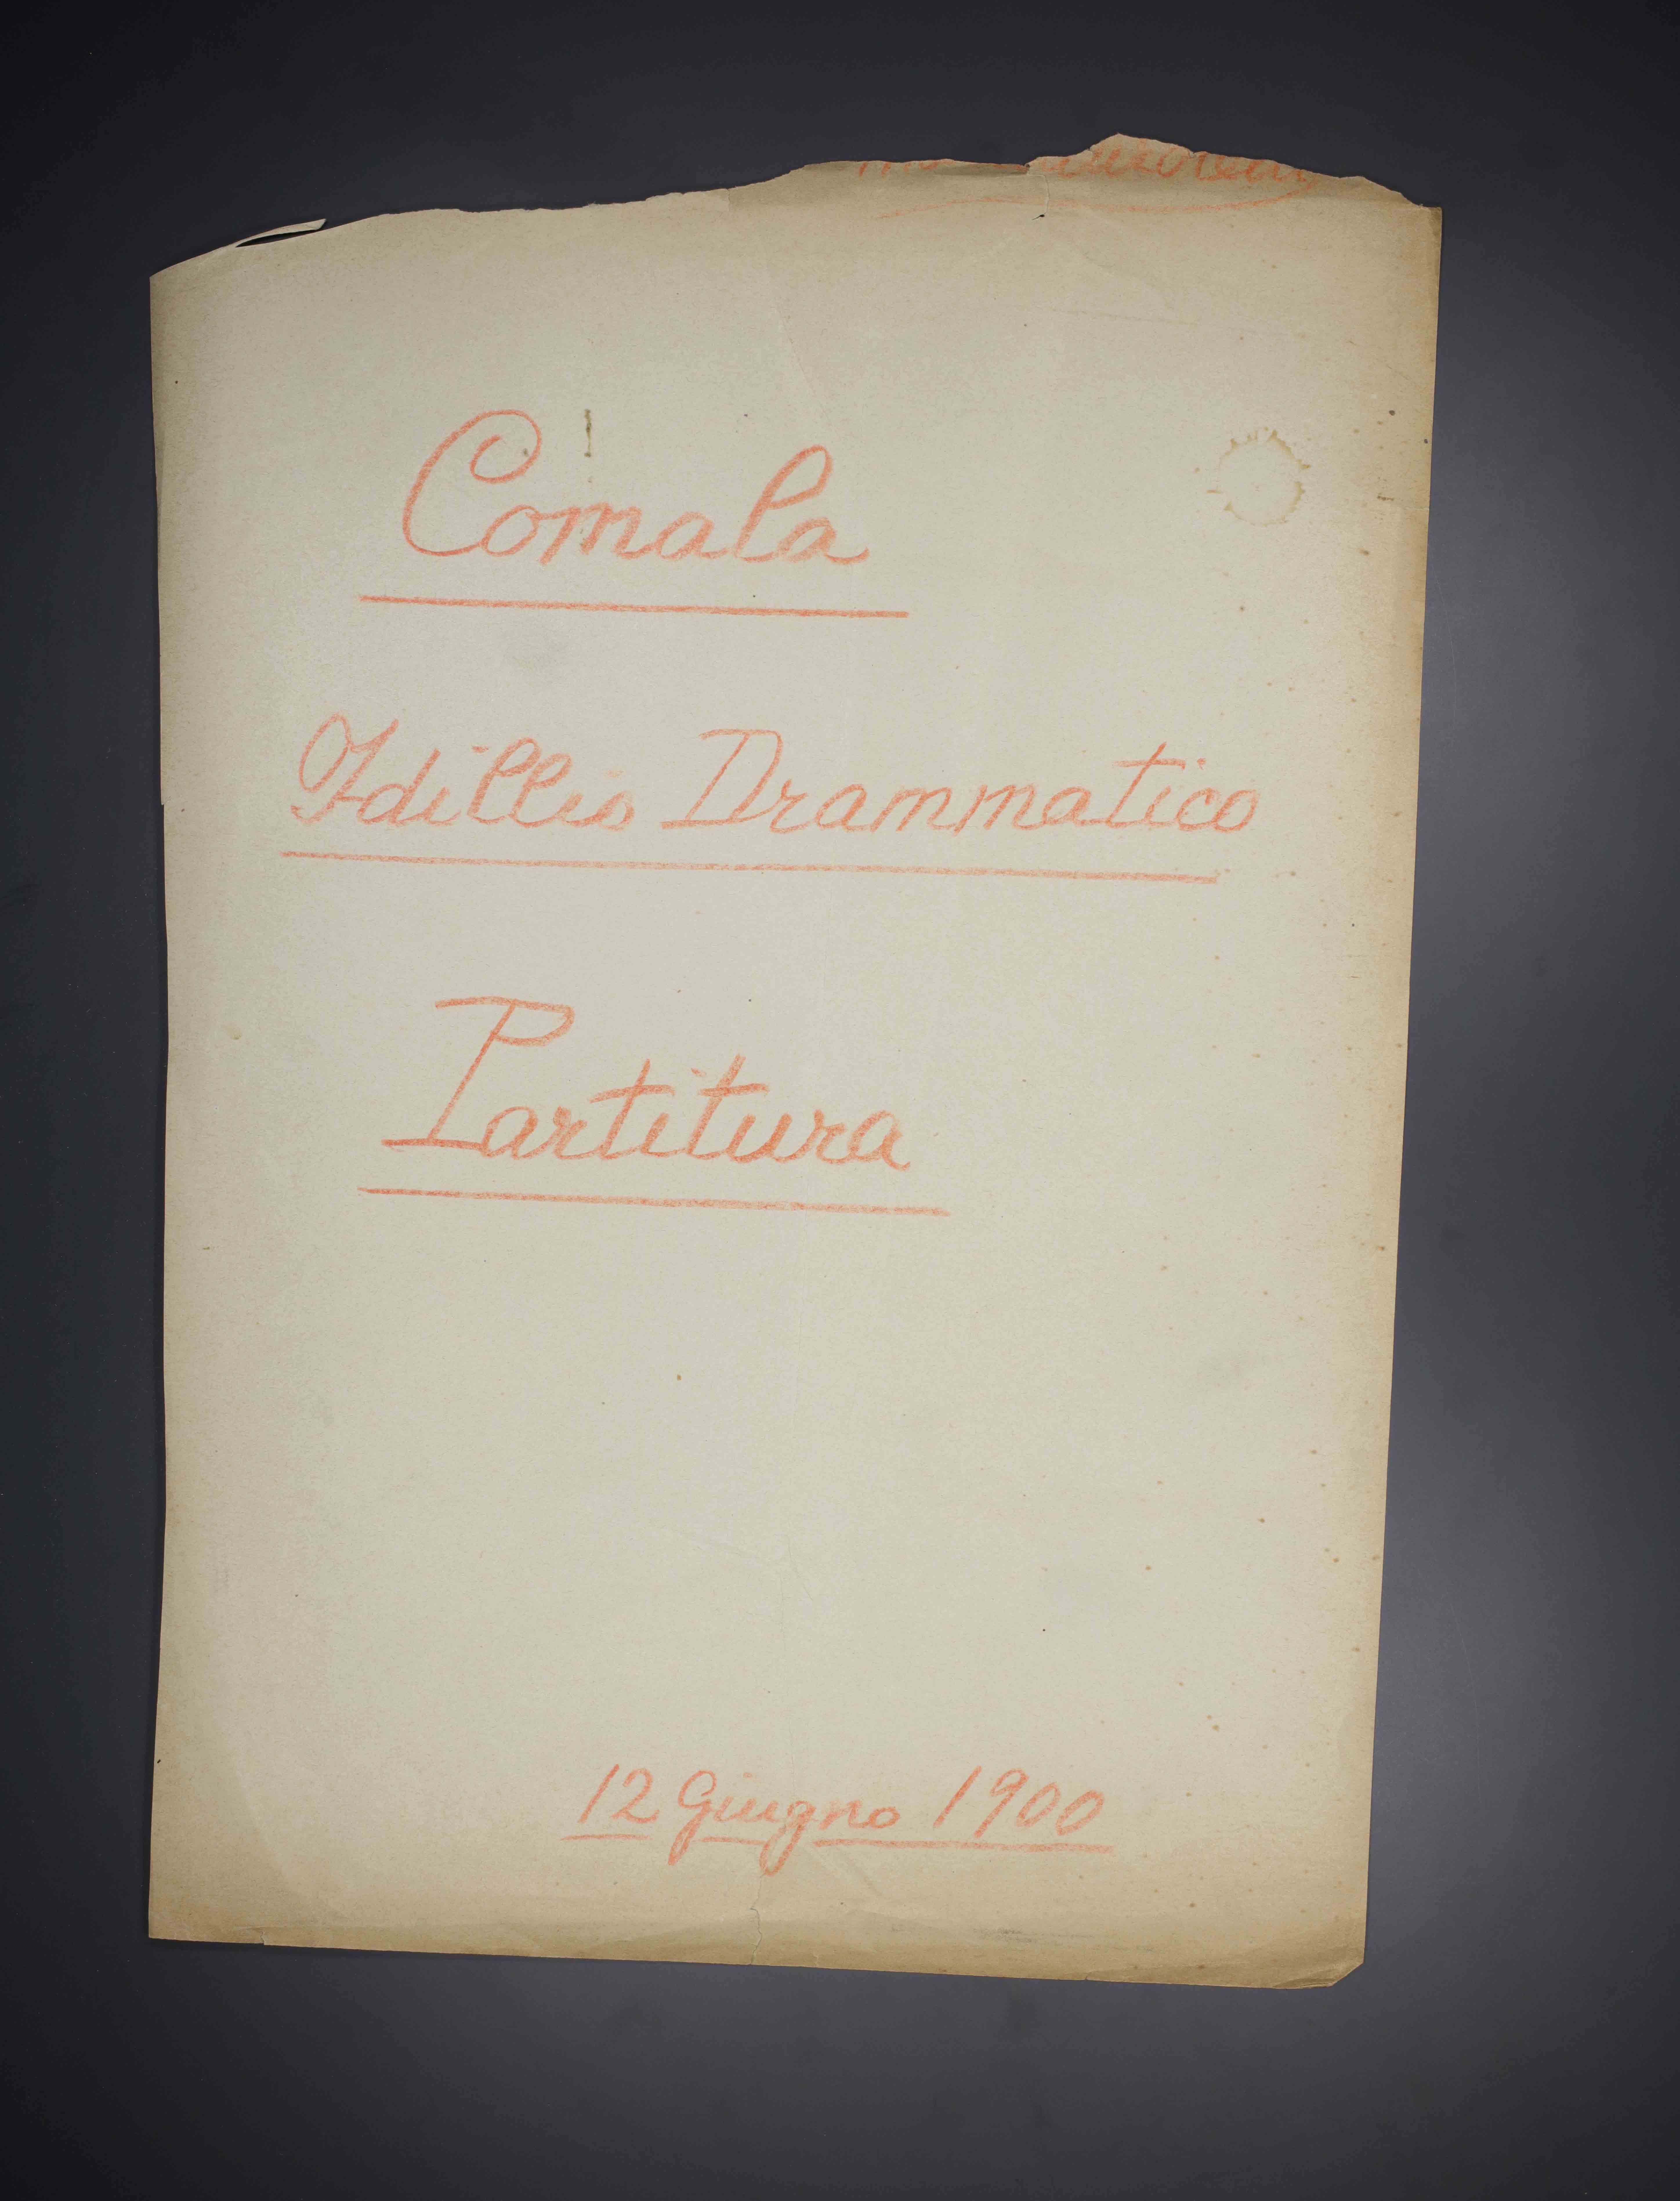 Comala
Idillio Drammatico
Partitura
12 Giugno 1900